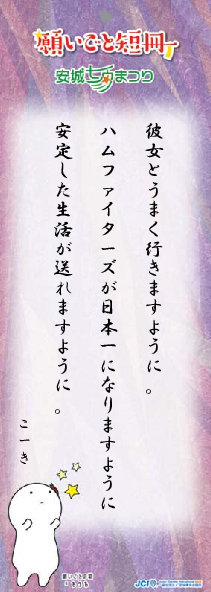 願いごと短冊
安城七夕まつり
彼女とうまく行きますように。
ハムファイターズが日本一になりますように
安定した生活が送れますように。
こーき
願いごと短冊
JCI